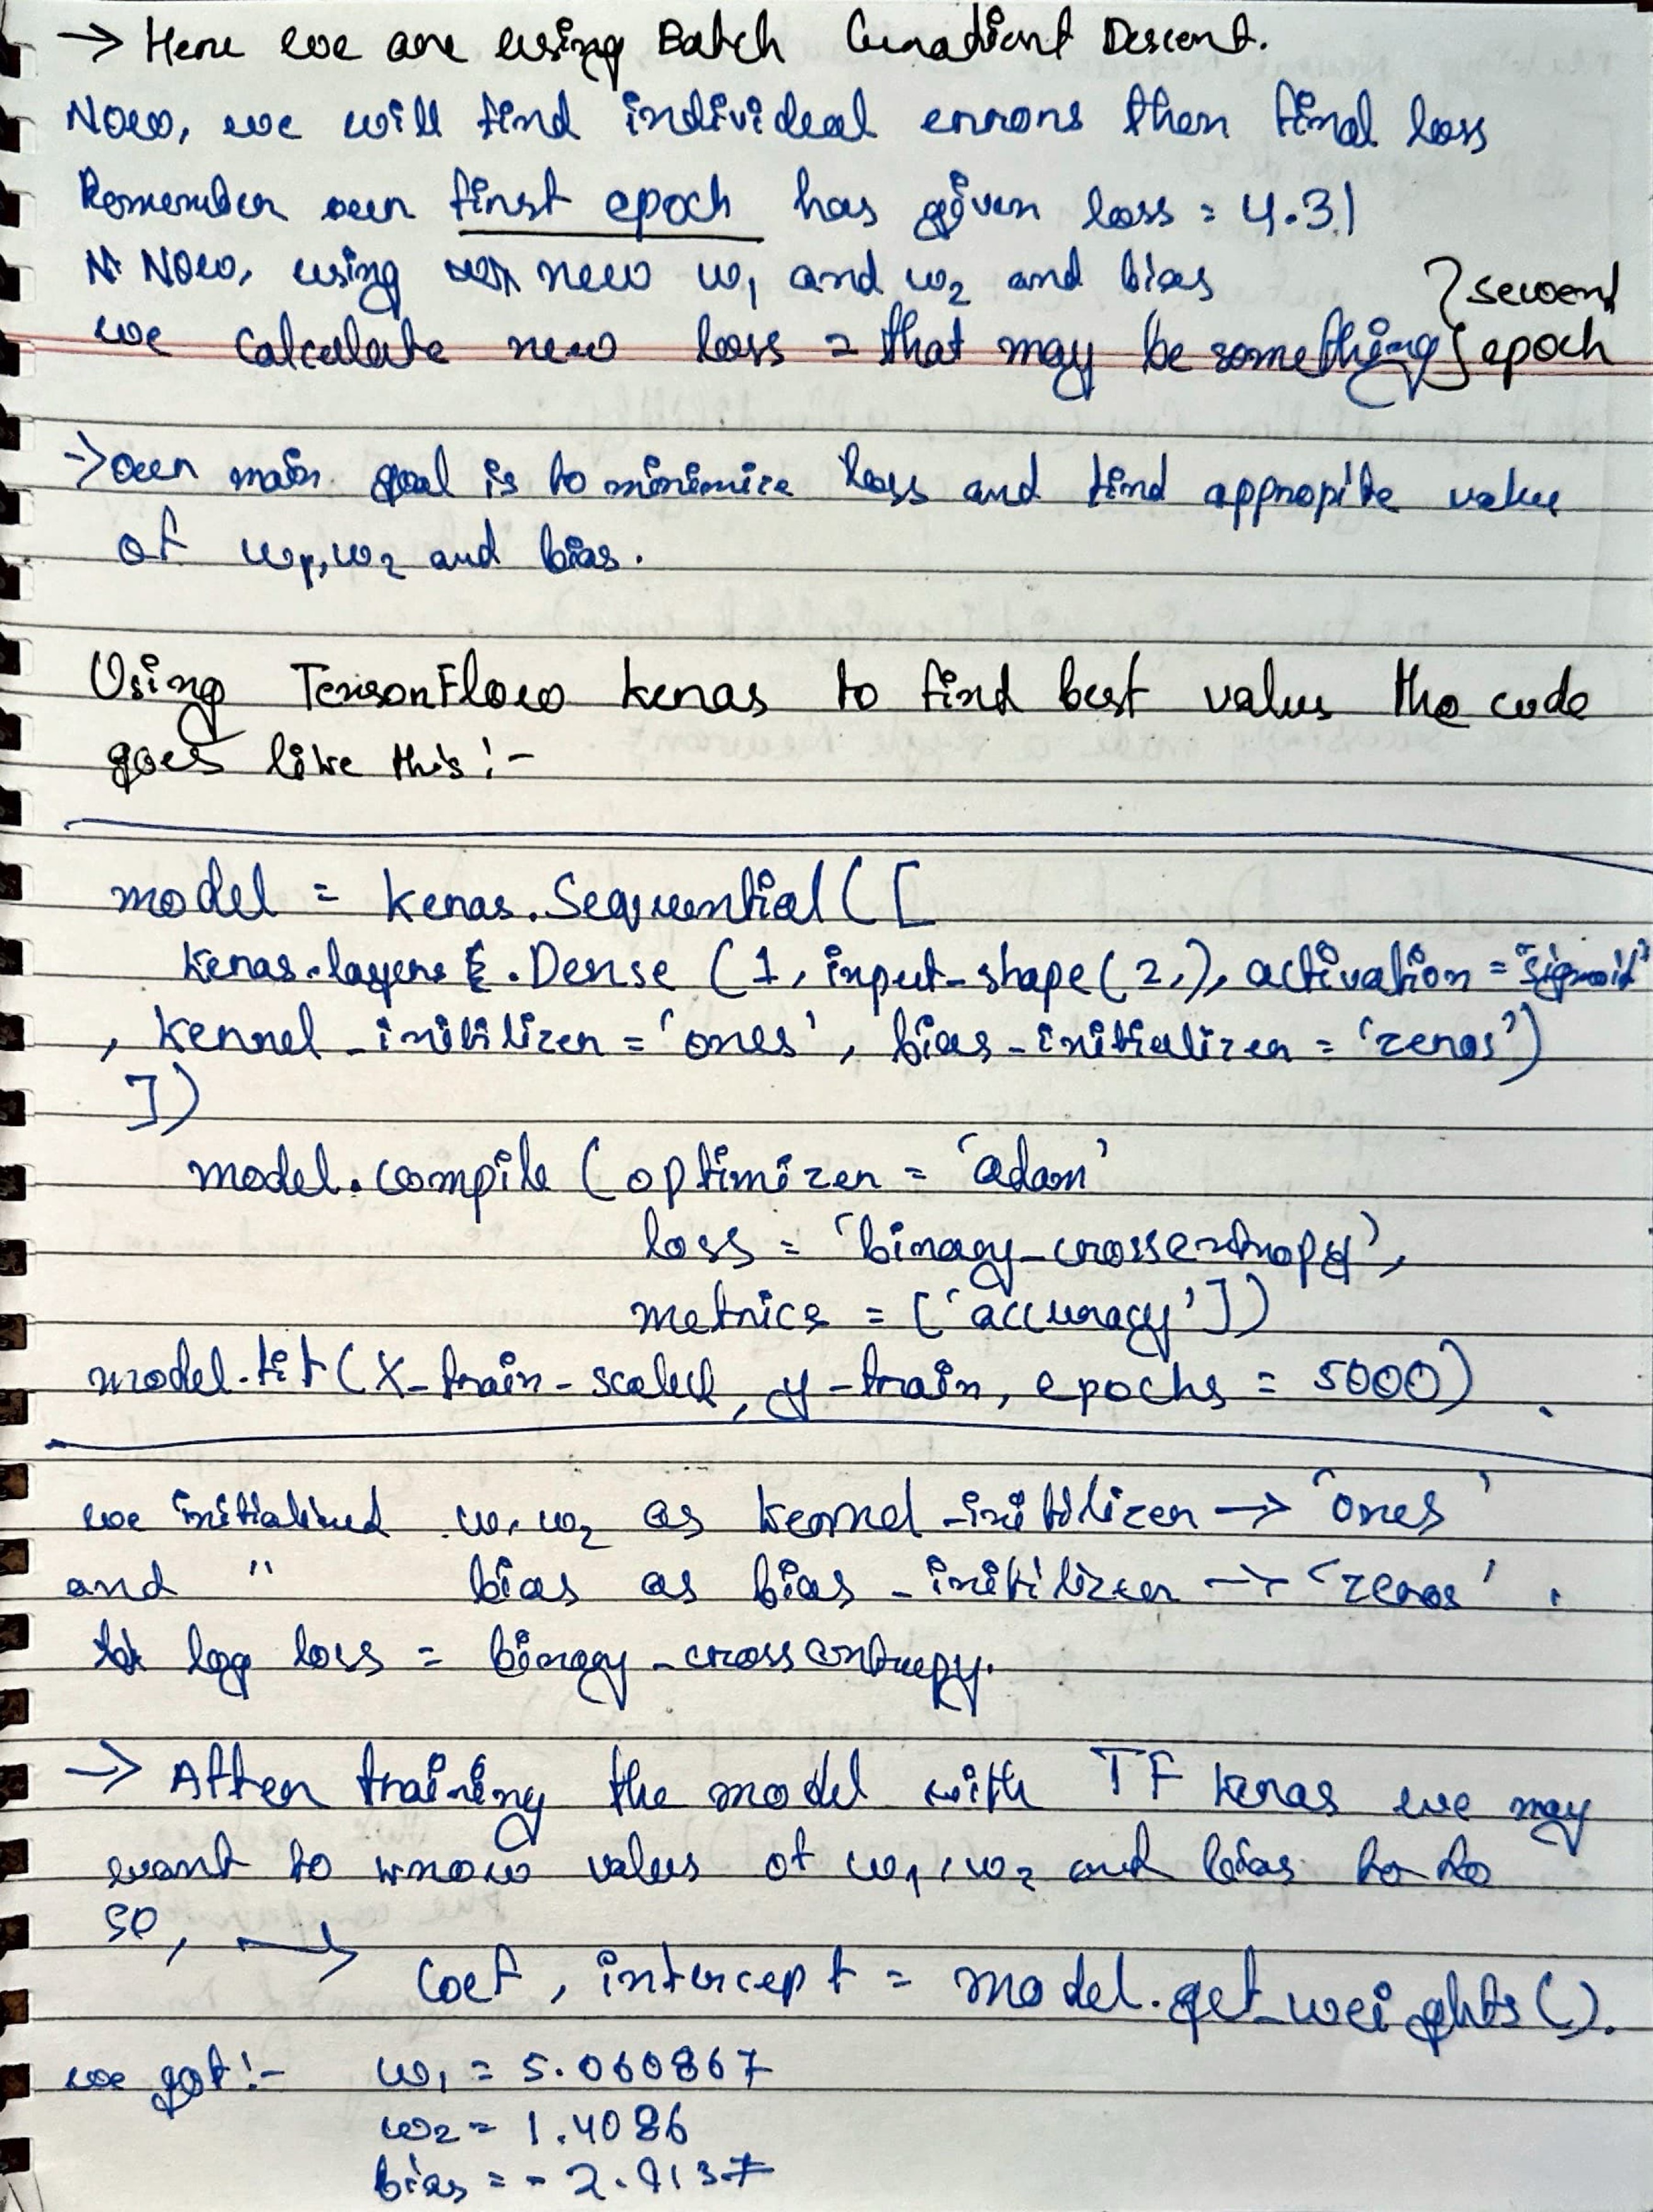 → Here we are using Batch Gradient Descent.
Now, we will find individual errors then final loss
Remember our first epoch has given loss = 4.31
Now, using new w₁ and w₂ and bias
we calculate new loss = that may be something } second epoch
→ our main goal is to minimize loss and find appropite value
of w₁, w₂ and bias.
Using TensorFlow keras to find best values the code
goes like this :-
model = keras.Sequential([
keras.layers.Dense (1, input_shape(2,), activation = "sigmoid"
, kernel_initilizer = 'ones', bias_initializer = 'zeros')
])
model.compile (optimizer = 'adam'
loss = 'binary_crossentropy',
metrics = ['accuracy'])
model.fit(X_train_scaled, y_train, epochs = 5000).
we initialized w₁ w₂ as kernel_initilizer → 'ones'
and " bias as bias_initilizer → 'zeros'.
log loss = binary_crossentropy.
→ After training the model with TF keras we may
want to know values of w₁, w₂ and bias to do
so, →
coef, intercept = model.get_weights().
we got :- w₁ = 5.060867
w₂ = 1.4086
bias = -2.9137